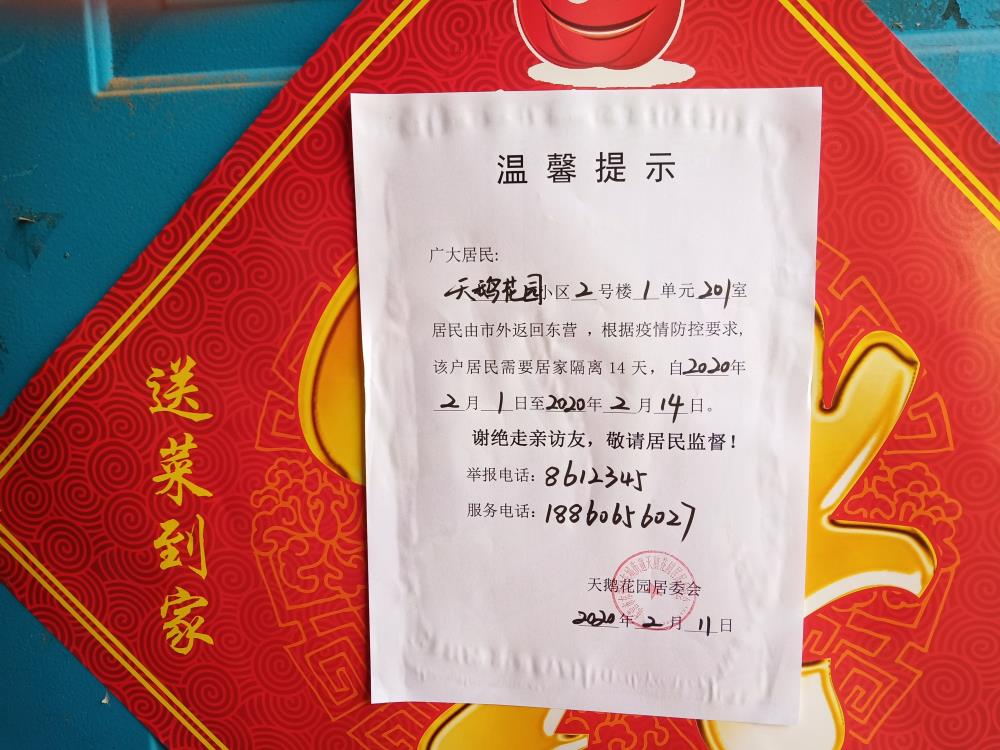 温馨提示
广大居民:
天鹅花园小区2号楼1单元201室
居民由市外返回东营，根据疫情防控要求,
该户居民需要居家隔离14天，自2020年
2月1日至2020年2月14日。
谢绝走亲访友，敬请居民监督！
举报电话：8612345
服务电话：18860656027
天鹅花园居委会
2020年2月11日
送菜到家